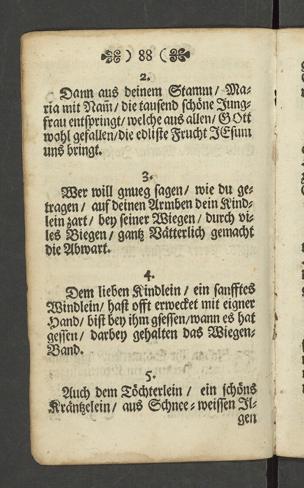 ) 88 (
2.
Dann aus deinem Stamm / Ma-
ria mit Nam̃ / die tausend schöne Jung-
frau entspringt / welche aus allen / GOtt
wohl gefallen / die edliste Frucht JEsum
uns bringt.
3.
Wer will gnueg sagen / wie du ge-
tragen / auf deinen Armben dein Kind-
lein zart / bey seiner Wiegen / durch vi-
les Biegen / gantz Vätterlich gemacht
die Abwart.
4.
Dem lieben Kindlein / ein sanfftes
Windlein / hast offt erwecket mit eigner
Hand / bist bey ihm gsessen / wann es hat
gessen / darbey gehalten das Wiegen-
Band.
5.
Auch dem Töchterlein / ein schöns
Kräntzelein / aus Schnee-weissen Jl-
gen